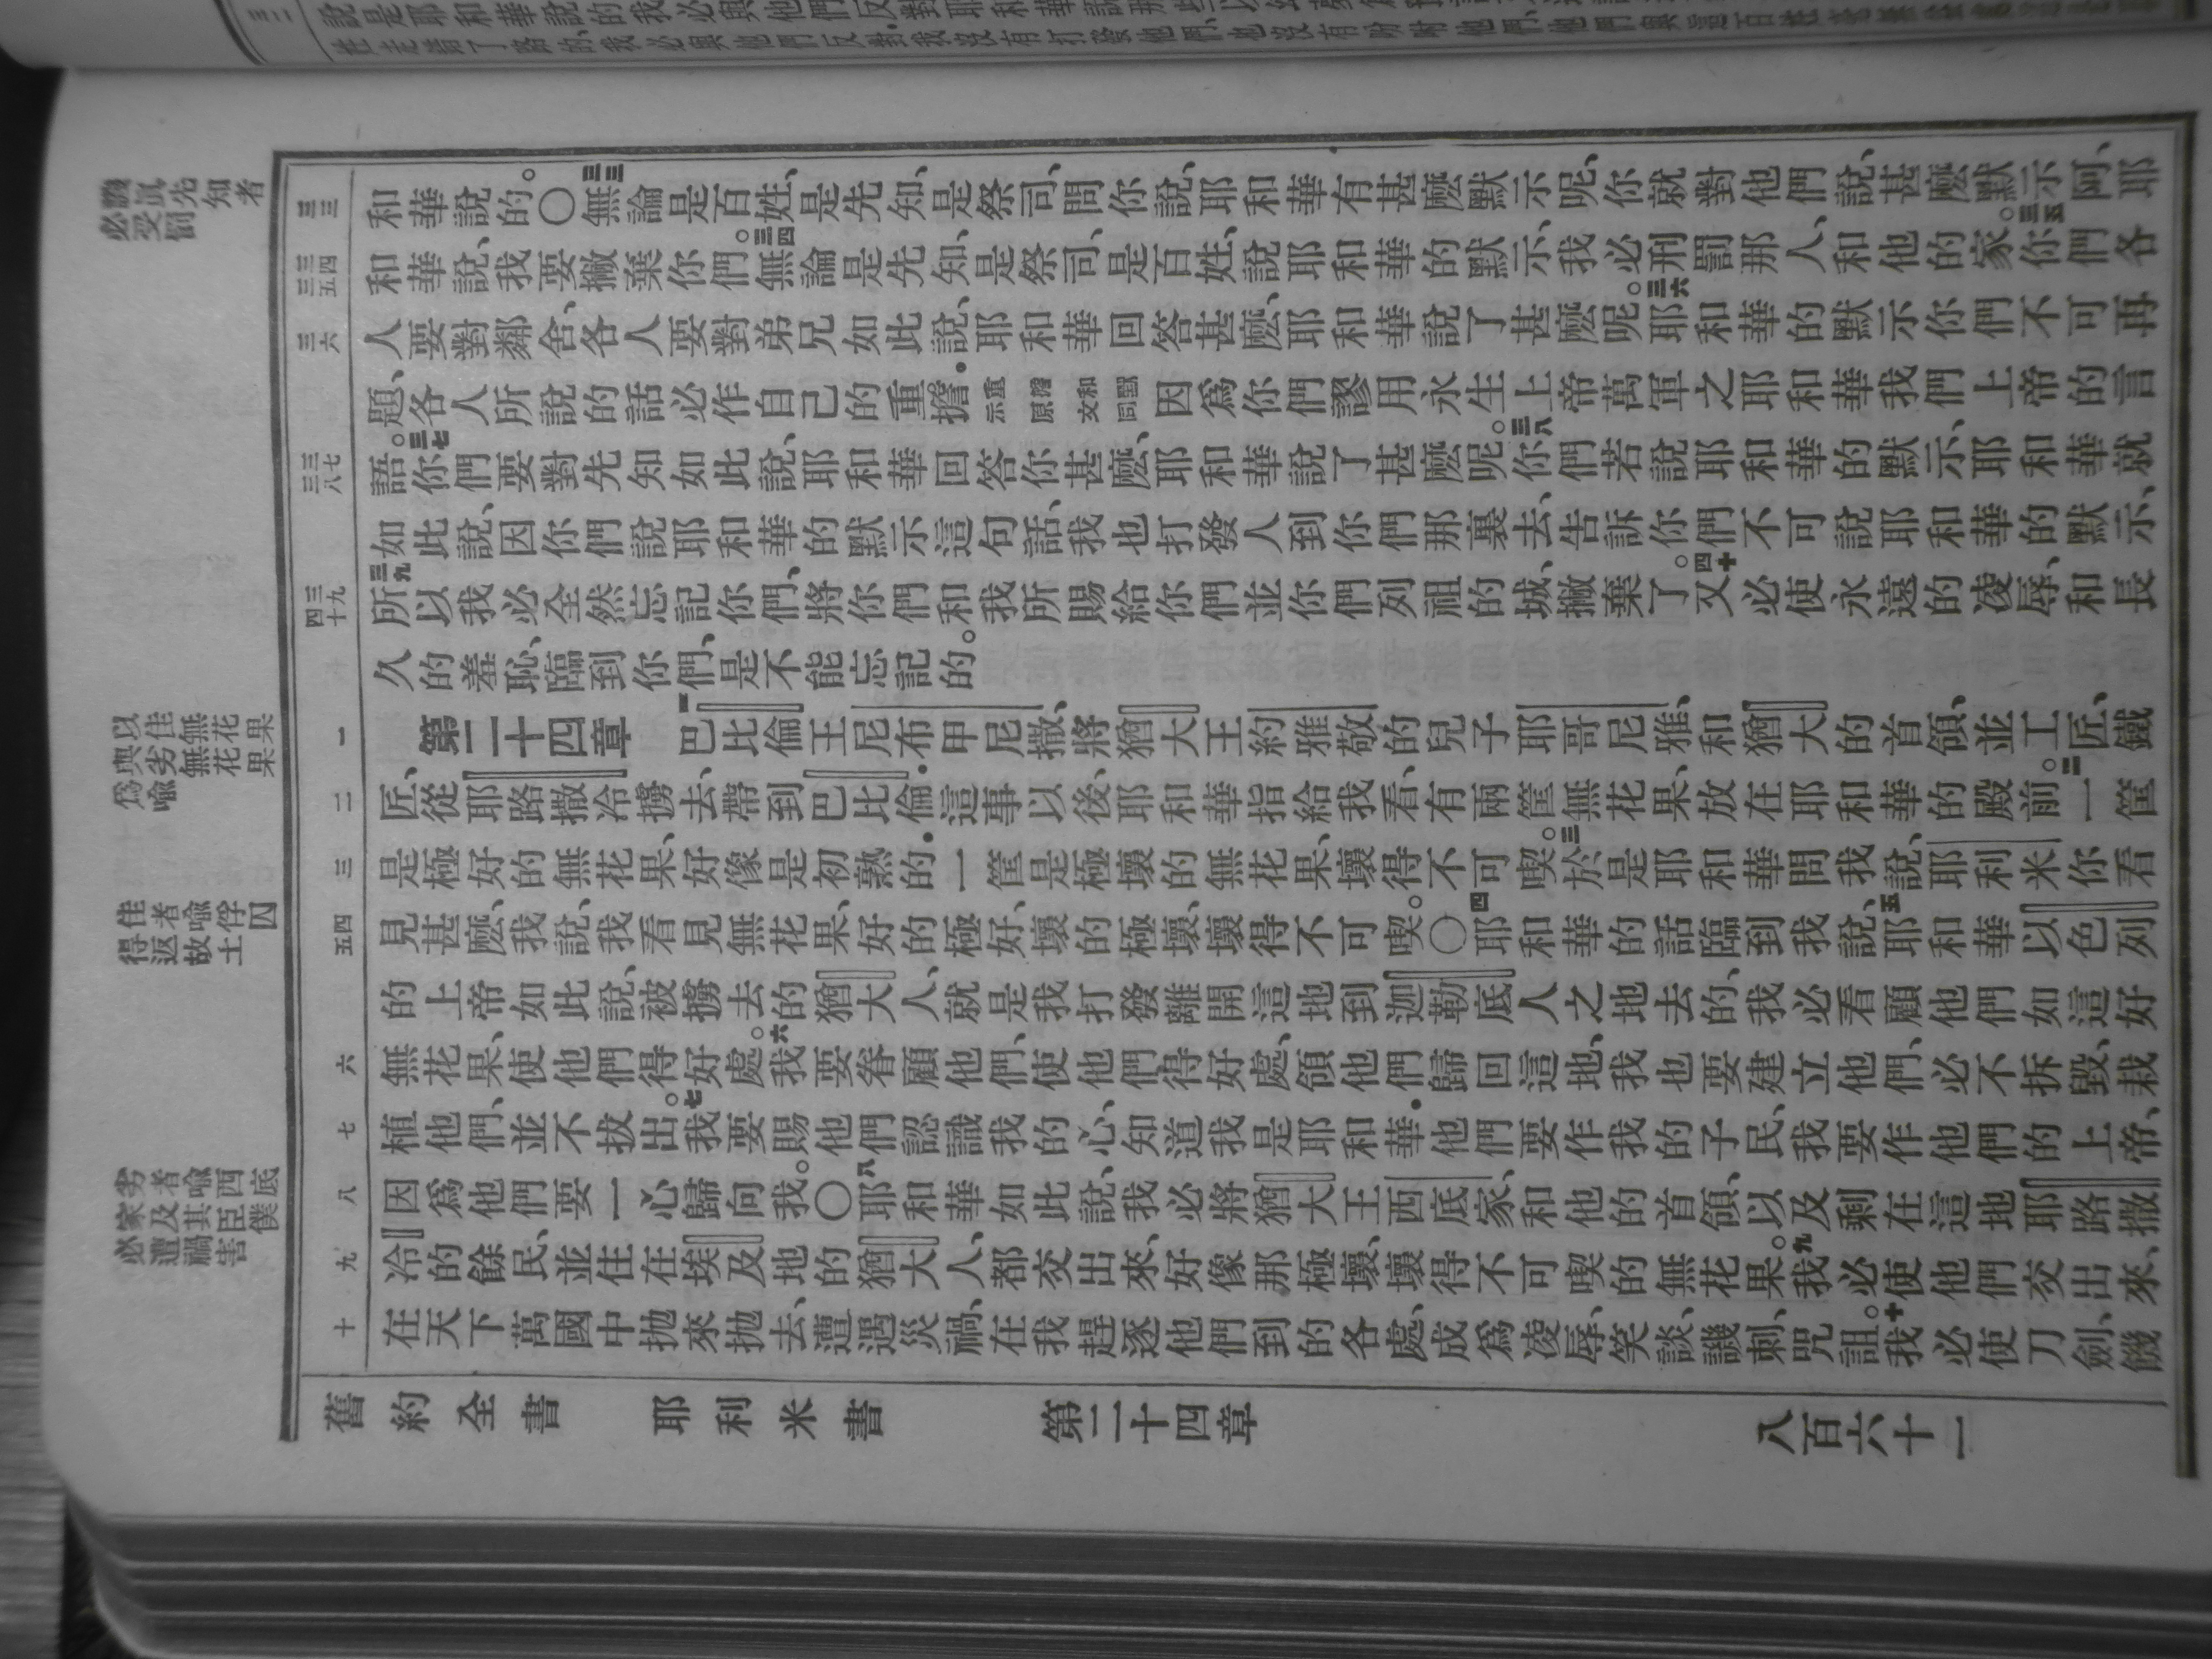 和華說的。〇三三無論是百姓、是先知、是祭司、問你說、耶和華有甚麼默示呢、你就對他們說、甚麼默示阿、耶
和華說、我要撇棄你們。三四無論是先知、是祭司、是百姓、說耶和華的默示、我必刑罰那人、和他的家。三五你們各
人要對鄰舍、各人要對弟兄如此說、耶和華回答甚麼、耶和華說了甚麼呢。三六耶和華的默示你們不可再
題、各人所說的話必作自己的重擔．重擔和默示原文同因爲你們謬用永生上帝萬軍之耶和華我們上帝的言
語。三七你們要對先知如此說、耶和華回答你甚麼、耶和華說了甚麼呢。三八你們若說耶和華的默示、耶和華就
如此說、因你們說耶和華的默示這句話、我也打發人到你們那裏去、告訴你們不可說耶和華的默示、
三九所以我必全然忘記你們、將你們和我所賜給你們並你們列祖的城、撇棄了。四十又必使永遠的凌辱、和長
久的羞恥、臨到你們、是不能忘記的。
第二十四章 一巴比倫王尼布甲尼撒、將猶大王約雅敬的兒子耶哥尼雅、和猶大的首領、並工匠、鐵
匠、從耶路撒冷擄去、帶到巴比倫．這事以後、耶和華指給我看、有兩筐無花果、放在耶和華的殿前。二一筐
是極好的無花果、好像是初熟的．一筐是極壞的無花果、壞得不可喫。三於是耶和華問我說、耶利米你看
見甚麼、我說、我看見無花果、好的極好、壞的極壞、壞得不可喫。〇四耶和華的話臨到我說、五耶和華以色列
的上帝如此說、被擄去的猶大人、就是我打發離開這地到迦勒底人之地去的、我必看顧他們如這好
無花果、使他們得好處。六我要眷顧他們、使他們得好處、領他們歸回這地、我也要建立他們、必不拆毀、栽
植他們、並不拔出。七我要賜他們認識我的心、知道我是耶和華．他們要作我的子民、我要作他們的上帝、
因爲他們要一心歸向我。〇八耶和華如此說、我必將猶大王西底家、和他的首領、以及剩在這地耶路撒
冷的餘民、並住在埃及地的猶大人、都交出來、好像那極壞、壞得不可喫的無花果。九我必使他們交出來、
在天下萬國中拋來拋去、遭遇災禍、在我趕逐他們到的各處、成爲凌辱、笑談、譏刺、咒詛。十我必使刀劍、饑
必受罰
以佳無花果
與劣無花果
爲喩
佳者喩俘囚
得返故土
劣者喩西底
家及其臣僕
必遭禍害
三三
三四
三五
三六
三七
三八
三九
四十
一
二
三
四
五
六
七
八
九
十
舊約全書 耶利米書 第二十四章 八百六十一